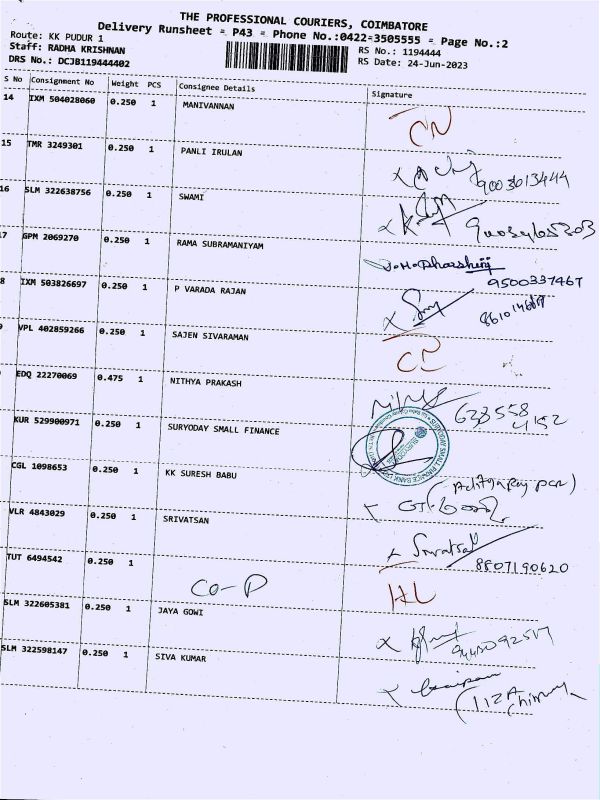 THE PROFESSIONAL COURIERS, COIMBATORE
Delivery Runsheet = P43 = Phone No.:0422-3505555 = Page No.:2
Route: KK PUDUR 1
Staff: RADHA KRISHNAN
DRS No.: DCJB119444402
RS No.: 1194444
RS Date: 24-Jun-2023
S No Consignment No Weight PCS Consignee Details Signature
14 IXM 504028060 0.250 1 MANIVANNAN CN
15 TMR 3249301 0.250 1 PANLI IRULAN
9003013444
16 SLM 322638756 0.250 1 SWAMI
7 GPM 2069270 0.250 1 RAMA SUBRAMANIYAM
9500337467
8 IXM 503826697 0.250 1 P VARADA RAJAN
9 VPL 402859266 0.250 1 SAJEN SIVARAMAN
EDQ 22270069 0.475 1 NITHYA PRAKASH
638558
4152
KUR 529900971 0.250 1 SURYODAY SMALL FINANCE
CGL 1098653 0.250 1 KK SURESH BABU
VLR 4843029 0.250 1 SRIVATSAN
Srivatsan
8807190620
TUT 6494542 0.250 1 CO-P HL
SLM 322605381 0.250 1 JAYA GOWI
SLM 322598147 0.250 1 SIVA KUMAR